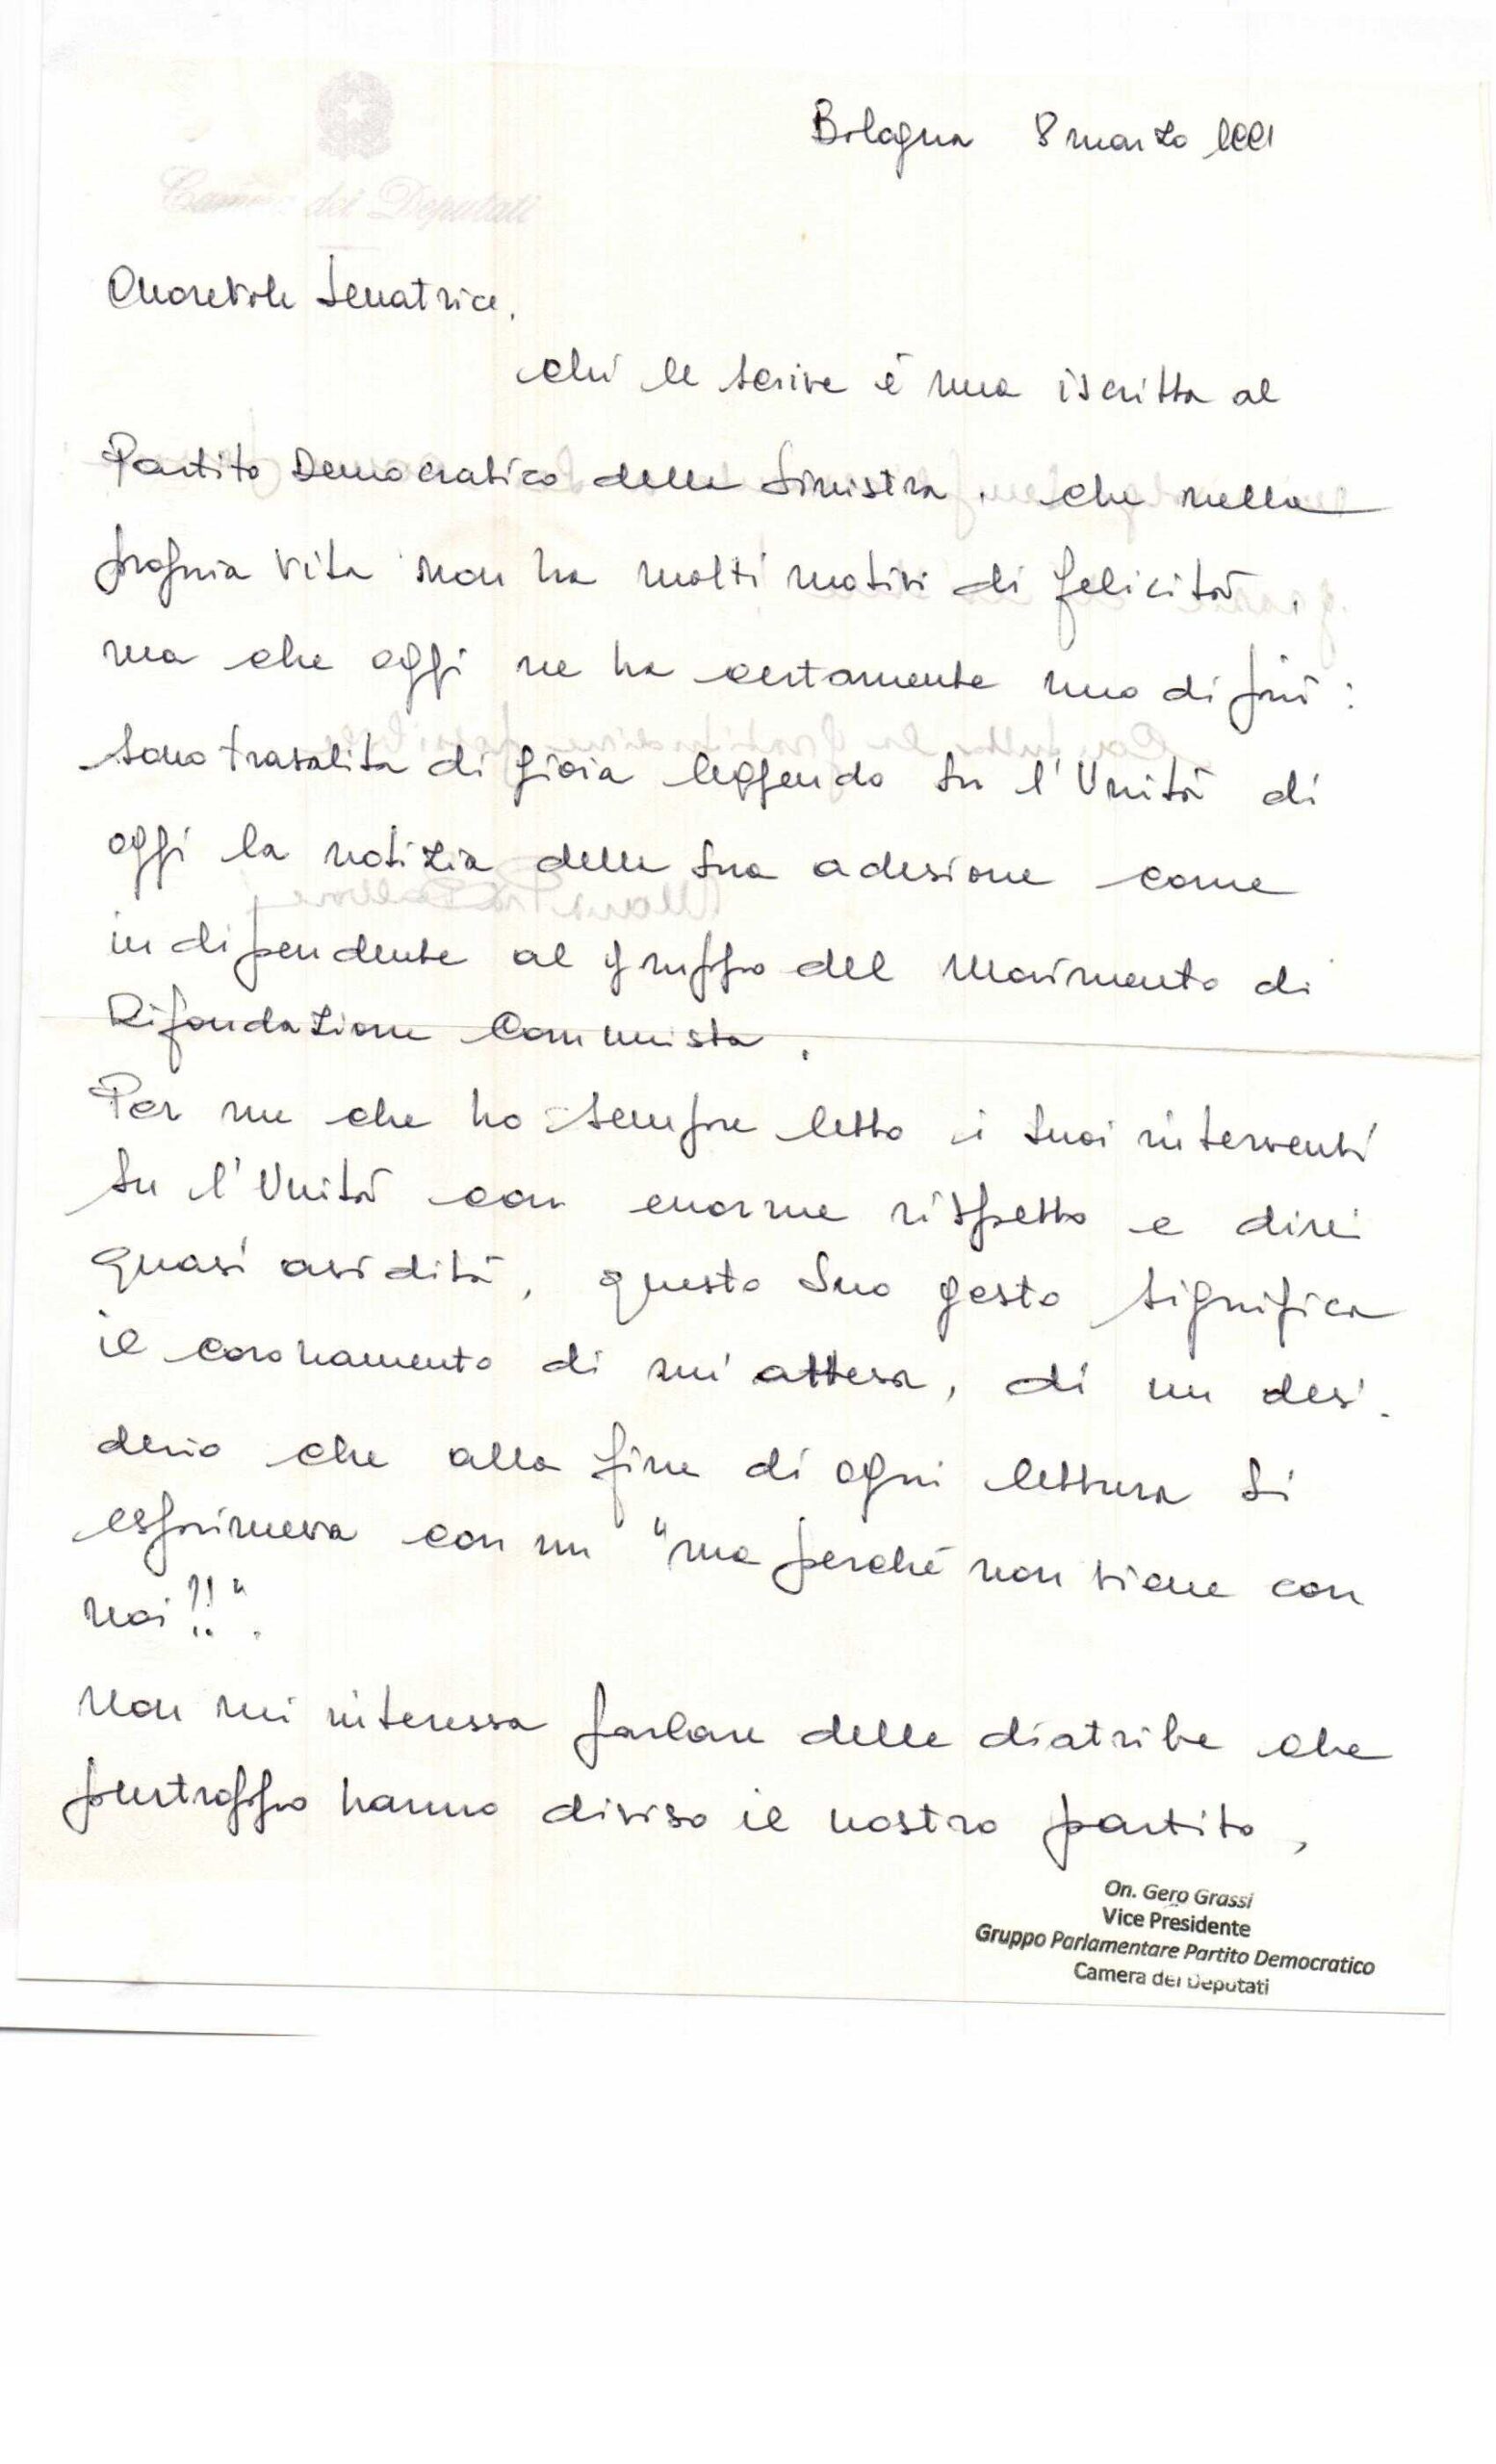 Bologna 8 marzo 1991
Camera dei Deputati
Onorevole Senatrice,
chi le scrive è una iscritta al
Partito Democratico della Sinistra, che nella
propria vita non ha molti motivi di felicità,
ma che oggi ne ha certamente uno di più:
sono trasalita di gioia leggendo su l'Unità di
oggi la notizia della Sua adesione come
indipendente al gruppo del Movimento di
Rifondazione Comunista.
Per me che ho sempre letto i suoi interventi
su l'Unità con enorme rispetto e direi
quasi avidità, questo Suo gesto significa
il coronamento di un'attesa, di un desi-
derio che alla fine di ogni lettura si
esprimeva con un "ma perché non viene con
noi!!".
Non mi interessa parlare delle diatribe che
purtroppo hanno diviso il nostro partito,
On. Gero Grassi
Vice Presidente
Gruppo Parlamentare Partito Democratico
Camera dei Deputati